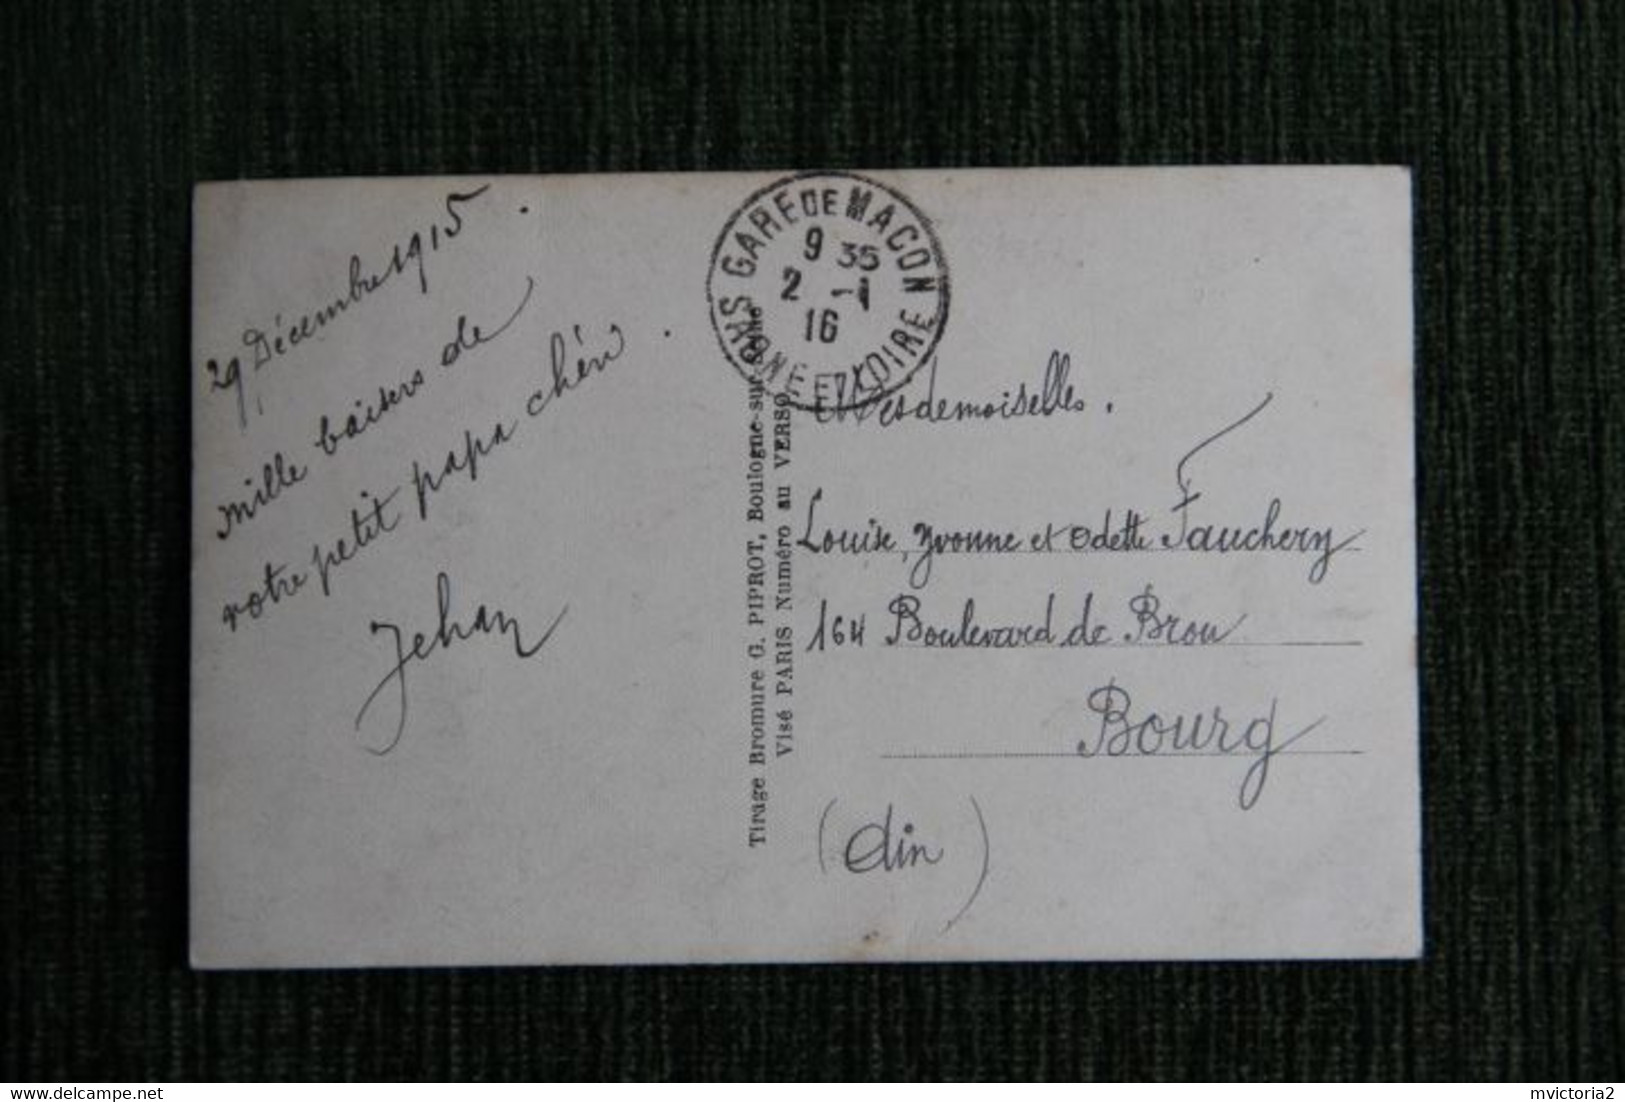 29 Décembre 1915.
Mille baisers de
votre petit papa chéri.
Jehan
GARE DE MACON
9 35
2 -1
16
SAONE ET LOIRE
Tirage Bromure G. PIPROT, Boulogne-sur-Seine
Visé PARIS Numéro au VERSO
Mesdemoiselles.
Louise, Yvonne et Odette Fauchery
164 Boulevard de Brou
Bourg
(Ain)
mvictoria2